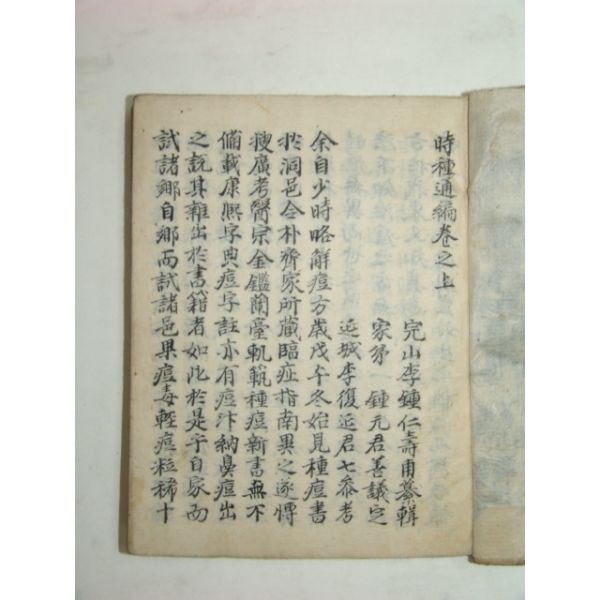 時種通編卷之上
完山李鍾仁壽甫纂輯
家弟 鍾元君善議定
延城李復延君七叅考
余自少時略解痘方歲戊午冬始見種痘書
於洞邑令朴齊家所藏臨症指南異之遂博
搜廣考醫宗金鑑蘭臺軌範種痘新書無不
備載康熙字典痘字註亦有痘汁納鼻痘出
之說其雜出於書籍者如此於是乎自家而
試諸鄉自鄉而試諸邑果痘毒輕痘粒稀十